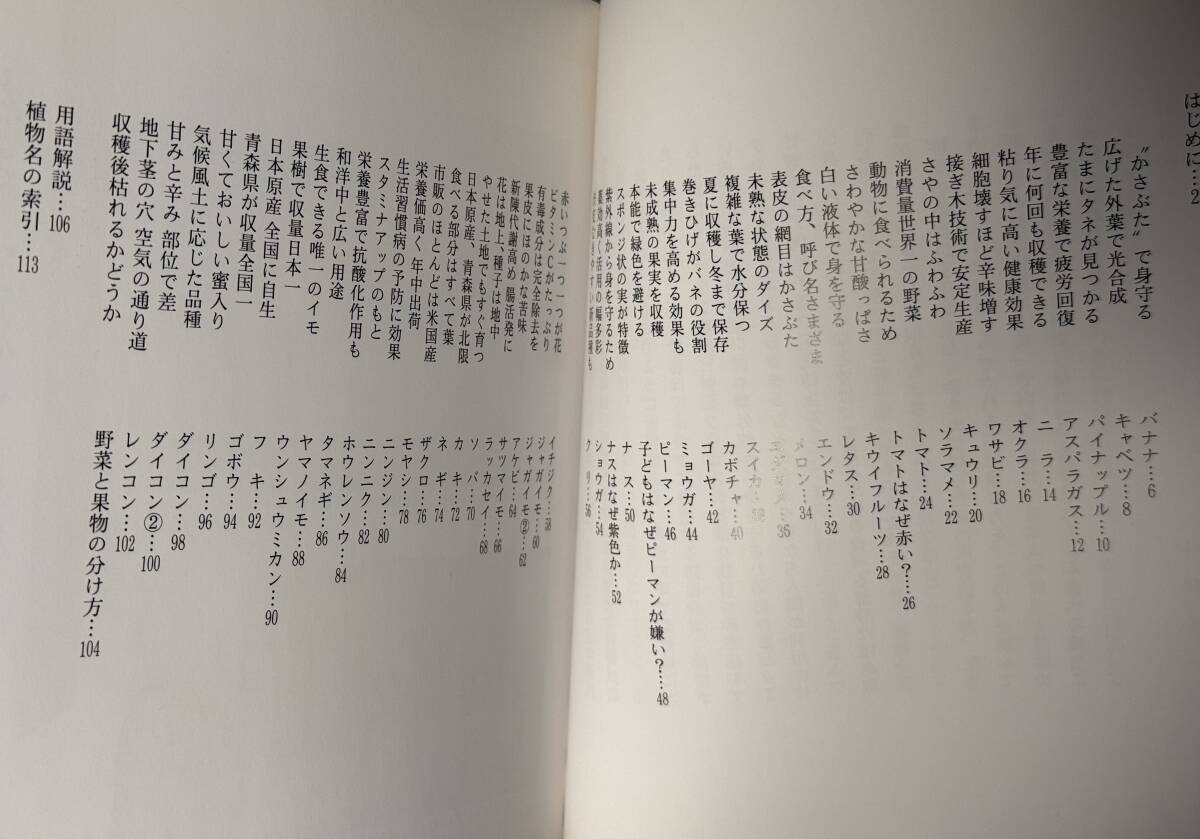 はじめに…2
〝かさぶた〟で身守る バナナ…6
広げた外葉で光合成 キャベツ…8
たまにタネが見つかる パイナップル…10
豊富な栄養で疲労回復 アスパラガス…12
年に何回も収穫できる ニ ラ…14
粘り気に高い健康効果 オクラ…16
細胞壊すほど辛味増す ワサビ…18
接ぎ木技術で安定生産 キュウリ…20
さやの中はふわふわ ソラマメ…22
消費量世界一の野菜 トマト…24
動物に食べられるため トマトはなぜ赤い?…26
さわやかな甘酸っぱさ キウイフルーツ…28
白い液体で身を守る レタス…30
食べ方、呼び名さまざま エンドウ…32
表皮の網目はかさぶた メロン…34
未熟な状態のダイズ エダマメ…36
複雑な葉で水分保つ スイカ…38
夏に収穫し冬まで保存 カボチャ…40
巻きひげがバネの役割 ゴーヤ…42
集中力を高める効果も ミョウガ…44
未成熟の果実を収穫 ピーマン…46
本能で緑色を避ける 子どもはなぜピーマンが嫌い?…48
スポンジ状の実が特徴 ナ ス…50
紫外線から身を守るため ナスはなぜ紫色か…52
薬効高く活用の幅多彩 ショウガ…54
やすい新品種も ク リ…56
赤いつぶ一つ一つが花 イチジク…58
ビタミンCがたっぷり ジャガイモ…60
有毒成分は完全除去を ジャガイモ②…62
果皮にほのかな苦味 アケビ…64
新陳代謝高め 腸活発に サツマイモ…66
花は地上、種子は地中 ラッカセイ…68
やせた土地でもすぐ育つ ソ バ…70
日本原産、青森県が北限 カ キ…72
食べる部分はすべて葉 ネ ギ…74
市販のほとんどは米国産 ザクロ…76
栄養価高く 年中出荷 モヤシ…78
生活習慣病の予防に効果 ニンジン…80
スタミナアップのもと ニンニク…82
栄養豊富で抗酸化作用も ホウレンソウ…84
和洋中と広い用途 タマネギ…86
生食できる唯一のイモ ヤマノイモ…88
果樹で収量日本一 ウンシュウミカン…90
日本原産 全国に自生 フ キ…92
青森県が収量全国一 ゴボウ…94
甘くておいしい蜜入り リンゴ…96
気候風土に応じた品種 ダイコン…98
甘みと辛み 部位で差 ダイコン②…100
地下茎の穴 空気の通り道 レンコン…102
収穫後枯れるかどうか 野菜と果物の分け方…104
用語解説…106
植物名の索引…113